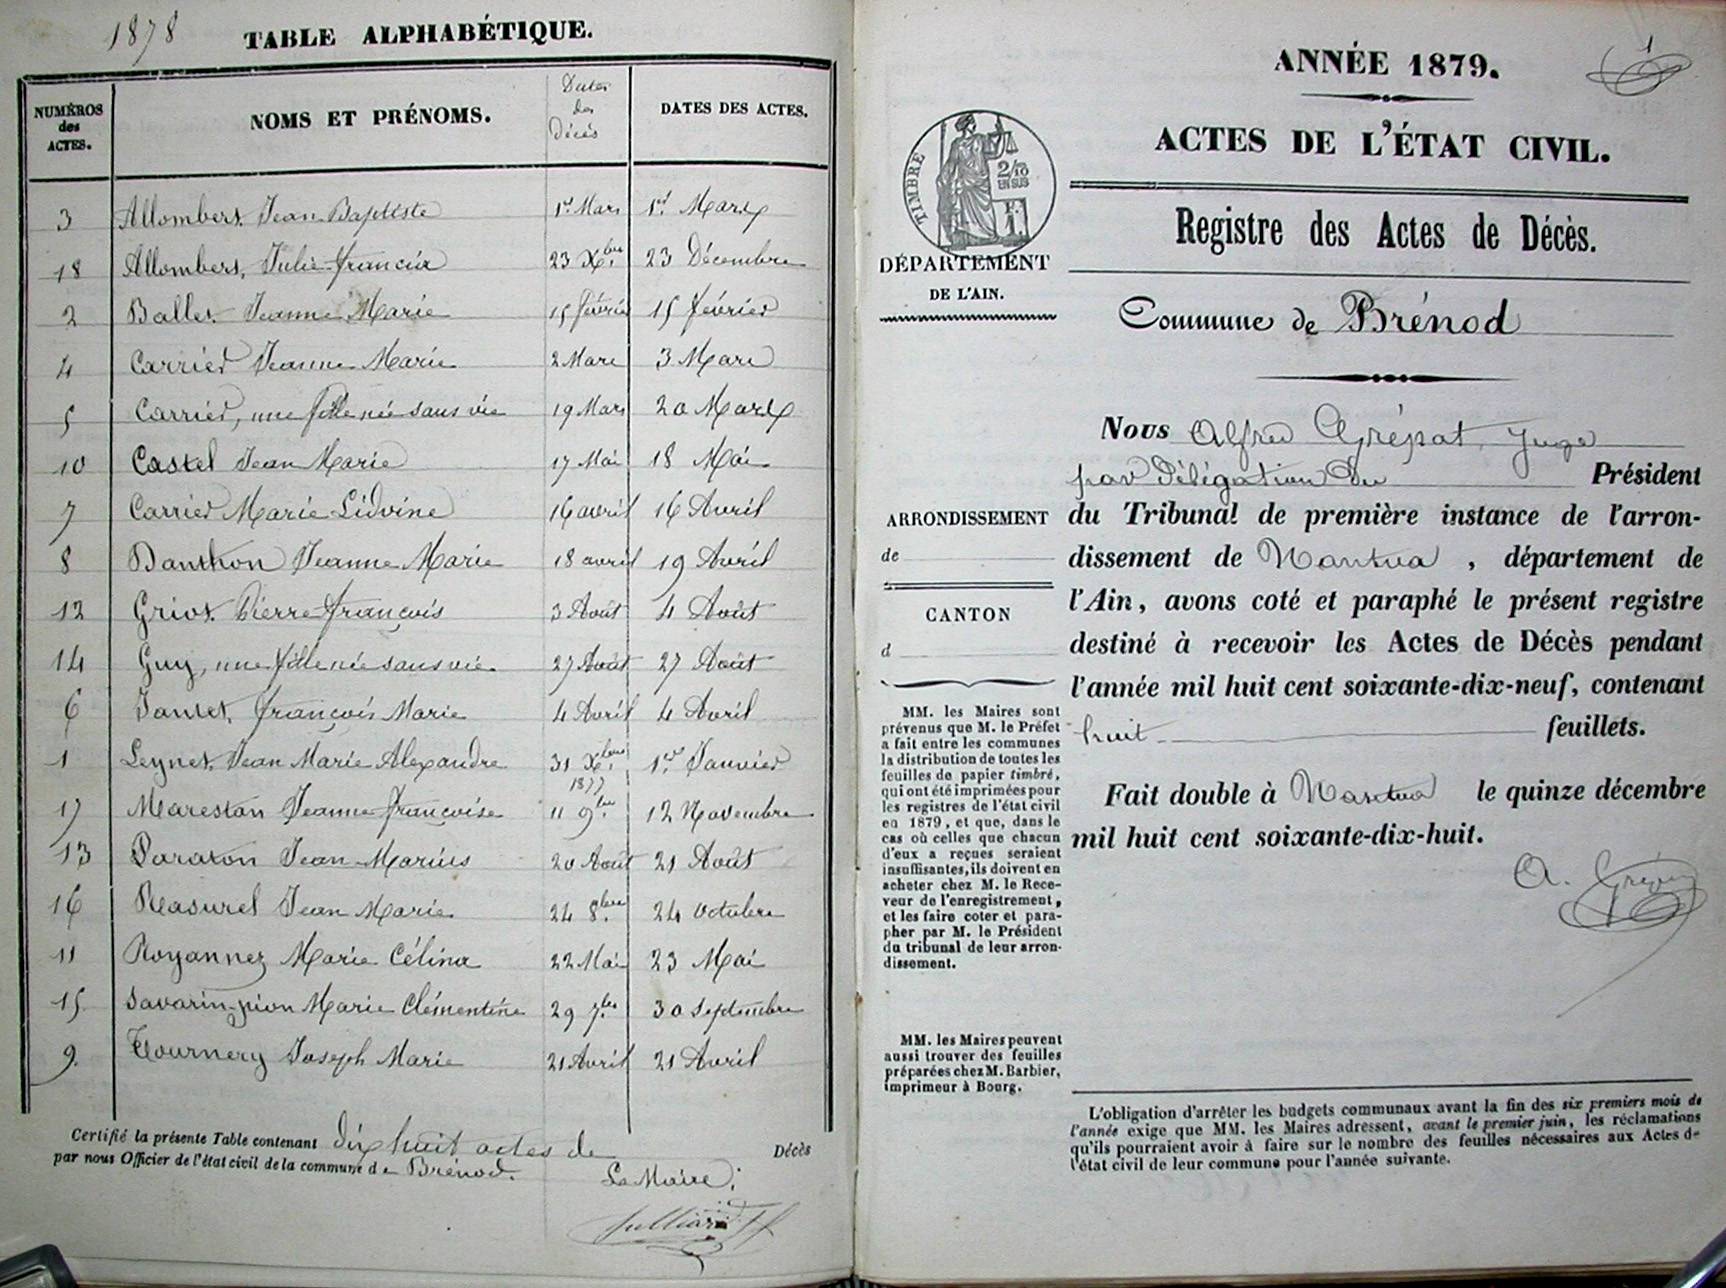 1878 TABLE ALPHABÉTIQUE.
NUMÉROS des ACTES. NOMS ET PRÉNOMS. Dates des Décès DATES DES ACTES.
3 Allombert Jean Baptiste 1er Mars 1er Mars
18 Allombert, Julie francia 23 Xbre 23 Décembre
2 Ballet Jeanne Marie 15 février 15 février
4 Carrier Jeanne Marie 2 Mars 3 Mars
5 Carrier, une fille née sans vie 19 Mars 20 Mars
10 Castel Jean Marie 17 Mai 18 Mai
7 Carrier Marie Lidvine 16 avril 16 Avril
8 Danthon Jeanne Marie 18 avril 19 Avril
12 Griot Pierre françois 3 Août 4 Août
14 Guy, une fille née sans vie 27 Août 27 Août
6 Jantet, françois Marie 4 Avril 4 Avril
1 Leynet, Jean Marie Alexandre 31 Xbre 1877 1er Janvier
17 Marestan Jeanne françoise 11 9bre 12 Novembre
13 Paraton Jean Marius 20 Août 21 Août
16 Reasurel Jean Marie 24 8bre 24 octobre
11 Royannez Marie Célina 22 Mai 23 Mai
15 Savarin-pion Marie Clémentine 29 7bre 30 septembre
9 Tournery Joseph Marie 21 Avril 21 Avril
Certifié la présente Table contenant dix huit actes de Décès
par nous Officier de l'état civil de la commune de Brénod.
Le Maire,
Julliard
1
ANNÉE 1879.
ACTES DE L'ÉTAT CIVIL.
Registre des Actes de Décès.
Commune de Brénod
TIMBRE
2/10
EN SUS
F.
1
DÉPARTEMENT
DE L'AIN.
ARRONDISSEMENT
de
CANTON
d
MM. les Maires sont
prévenus que M. le Préfet
a fait entre les communes
la distribution de toutes les
feuilles de papier timbré,
qui ont été imprimées pour
les registres de l'état civil
en 1879, et que, dans le
cas où celles que chacun
d'eux a reçues seraient
insuffisantes, ils doivent en
acheter chez M. le Rece-
veur de l'enregistrement,
et les faire coter et para-
pher par M. le Président
du tribunal de leur arron-
dissement.
MM. les Maires peuvent
aussi trouver des feuilles
préparées chez M. Barbier,
imprimeur à Bourg.
Nous Alfred Grépat, Juge
par délégation du Président
du Tribunal de première instance de l'arron-
dissement de Nantua, département de
l'Ain, avons coté et paraphé le présent registre
destiné à recevoir les Actes de Décès pendant
l'année mil huit cent soixante-dix-neuf, contenant
huit feuillets.
Fait double à Nantua le quinze décembre
mil huit cent soixante-dix-huit.
A. Grépat
L'obligation d'arrêter les budgets communaux avant la fin des six premiers mois de
l'année exige que MM. les Maires adressent, avant le premier juin, les réclamations
qu'ils pourraient avoir à faire sur le nombre des feuilles nécessaires aux Actes de
l'état civil de leur commune pour l'année suivante.